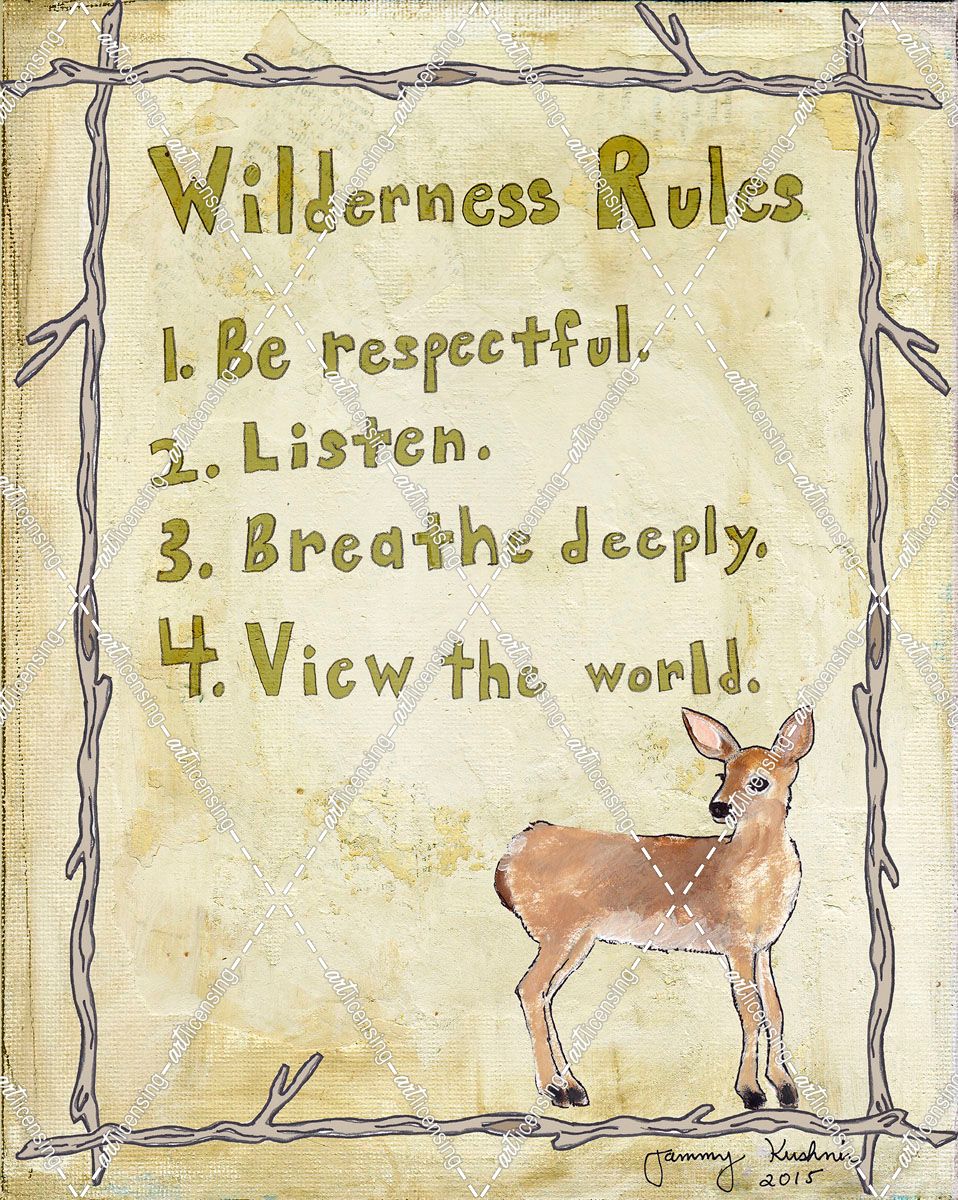 Wilderness Rules
1. Be respectful.
2. Listen.
3. Breathe deeply.
4. View the world.
Tammy Kushnir
2015
art licensing